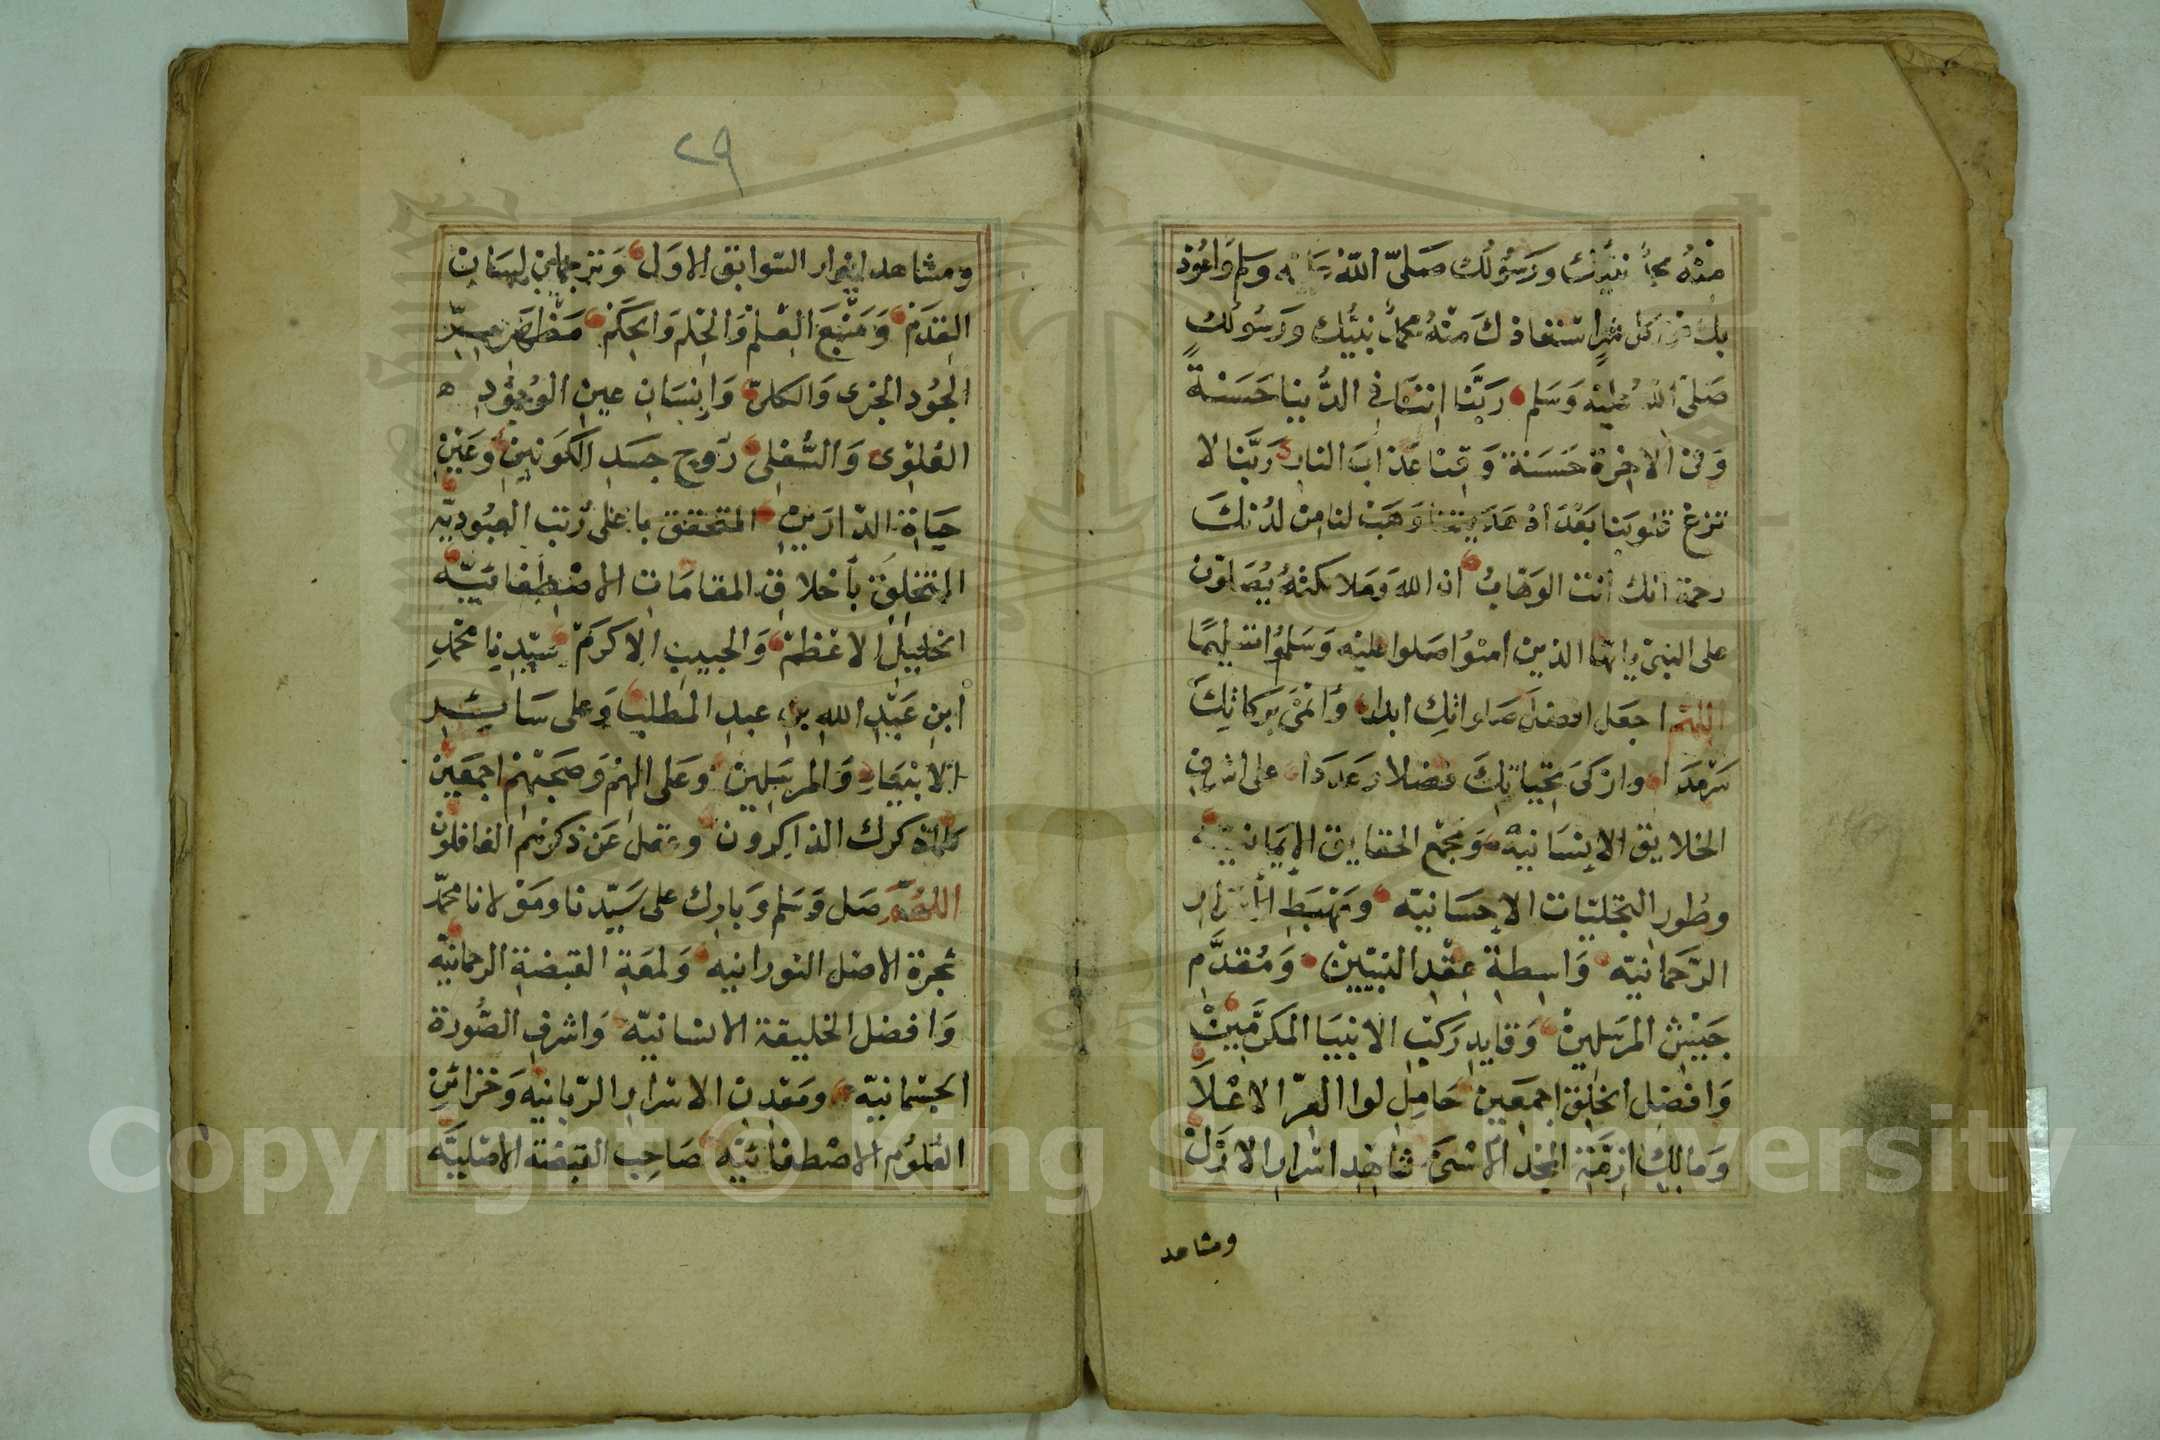 منه محمد نبيك ورسولك صلى الله عليه وسلم واعوذ
بك من كل شر استعاذك منه محمد نبيك ورسولك
صلى الله عليه وسلم ربنا اتنا في الدنيا حسنة
وفي الاخرة حسنة وقنا عذاب النار ربنا لا
تزغ قلوبنا بعد اذ هديتنا وهب لنا من لدنك
رحمة انك انت الوهاب ان الله وملائكته يصلون
على النبي يا ايها الذين امنوا صلوا عليه وسلموا تسليما
اللهم اجعل افضل صلواتك ابدا وانمى بركاتك
سرمدا وازكى تحياتك فضلا وعددا على اشرف
الخلايق الانسانيه ومجمع الحقايق الايمانيه
وطور التجليات الاحسانيه ومهبط الاسرار
الرحمانيه واسطة عقد النبيين ومقدم
جيش المرسلين وقايد ركب الانبيا المكرمين
وافضل الخلق اجمعين حامل لوا العز الاعلا
ومالك ازمة المجد الاسنى شاهد اسرار الازل
ومشاهد
٢٩
ومشاهد انوار السوابق الاول وترجمان لسان
القدم ومنبع العلم والحلم والحكم مظهر سر
الجود الجزى والكلي وانسان عين الوجود
العلوى والسفلى روح جسد الكونين وعين
حياة الدارين المتحقق باعلى رتب العبوديه
المتخلق بأخلاق المقامات الاصطفائيه
الخليل الاعظم والحبيب الاكرم سيدنا محمد
ابن عبد الله بن عبد المطلب وعلى سائر
الانبياء والمرسلين وعلى الهم وصحبهم اجمعين
كلما ذكرك الذاكرون وغفل عن ذكرهم الغافلون
اللهم صل وسلم وبارك على سيدنا ومولانا محمد
شجرة الاصل النورانيه ولمعة القبضة الرحمانيه
وافضل الخليقة الانسانيه واشرف الصورة
الجسمانيه ومعدن الاسرار الربانيه وخزائن
العلوم الاصطفائيه صاحب القبضة الاصليه
Copyright © King Saud University